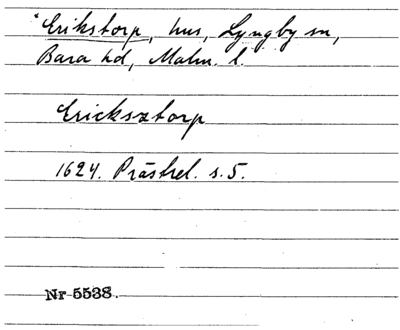 Erikstorp, hus, Lyngby sn,
Bara hd, Malm. l.
Ericksztorp
1624. Prästrel. s. 5.
Nr 5538.